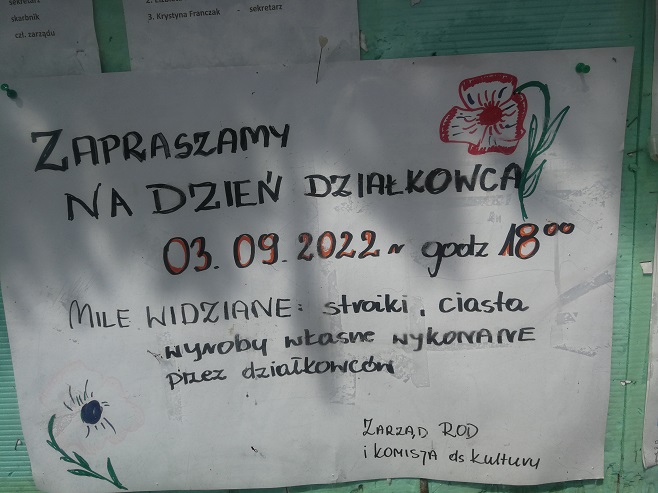 sekretarz
skarbnik
czł. zarządu
3. Krystyna Franczak - sekretarz
ZAPRASZAMY
NA DZIEŃ DZIAŁKOWCA
03. 09. 2022 r godz 18⁰⁰
MILE WIDZIANE: stroiki, ciasta
wyroby własne wykonane
przez działkowców
ZARZĄD ROD
i KOMISJA ds kultury